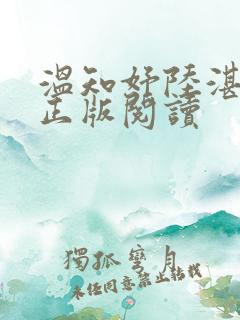 溫知妤陸湛
正版閱讀
獨孤彎月
未經同意禁止轉載